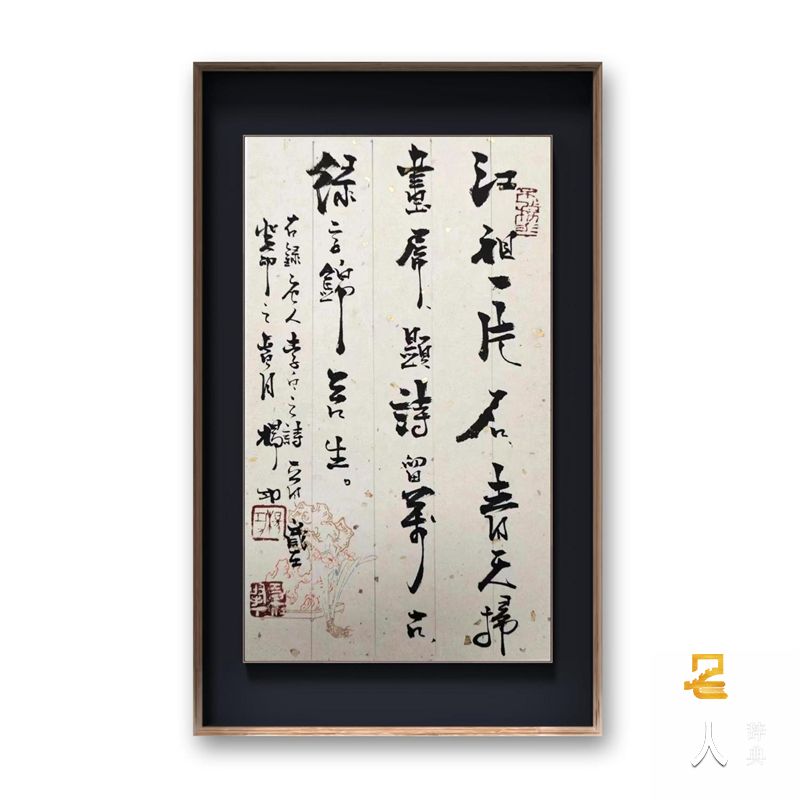 江祖一片石青天掃
畫屏、題詩留萬古
綠字錦苔生。
右錄人李白之詩
癸卯之春月楊
人
辞典